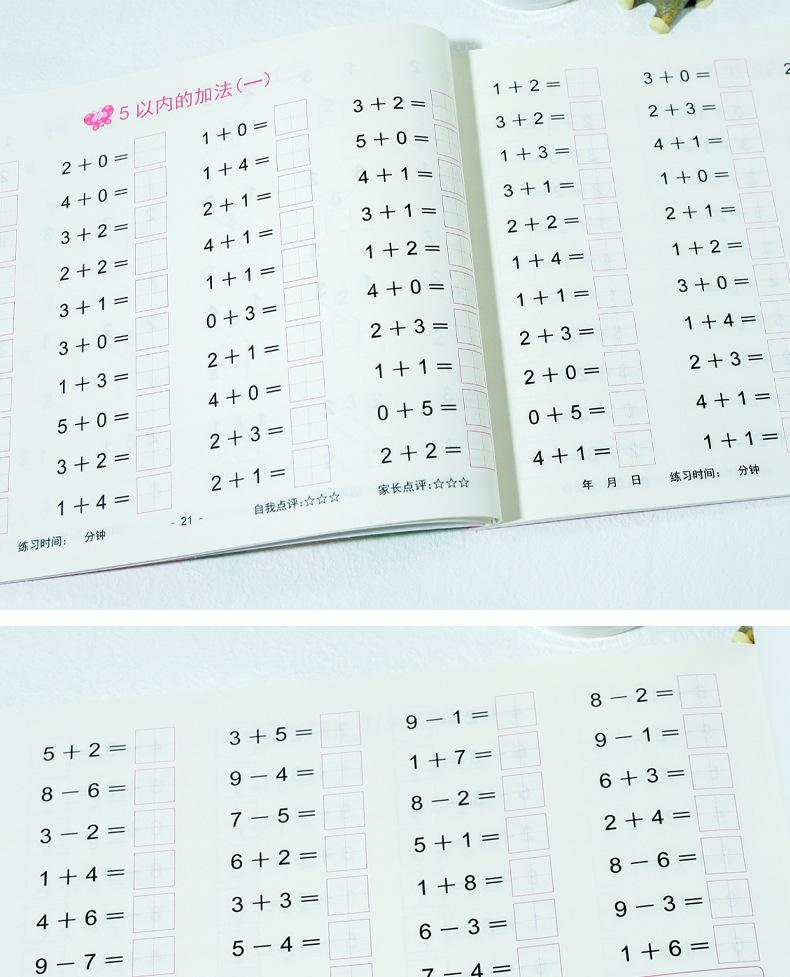 5以内的加法(一)
2+0=
4+0=
3+2=
2+2=
3+1=
3+0=
1+3=
5+0=
3+2=
1+4=
1+0=
1+4=
2+1=
4+1=
1+1=
0+3=
2+1=
4+0=
2+3=
2+1=
3+2=
5+0=
4+1=
3+1=
1+2=
4+0=
2+3=
1+1=
0+5=
2+2=
练习时间: 分钟
- 21 -
自我点评:☆☆☆
家长点评:☆☆☆
1+2=
3+2=
1+3=
3+1=
2+2=
1+4=
1+1=
2+3=
2+0=
0+5=
4+1=
3+0=
2+3=
4+1=
1+0=
2+1=
1+2=
3+0=
1+4=
2+3=
4+1=
1+1=
2
年 月 日
练习时间: 分钟
5+2=
8-6=
3-2=
1+4=
4+6=
9-7=
3+5=
9-4=
7-5=
6+2=
3+3=
5-4=
9-1=
1+7=
8-2=
5+1=
1+8=
6-3=
7-4=
8-2=
9-1=
6+3=
2+4=
8-6=
9-3=
1+6=